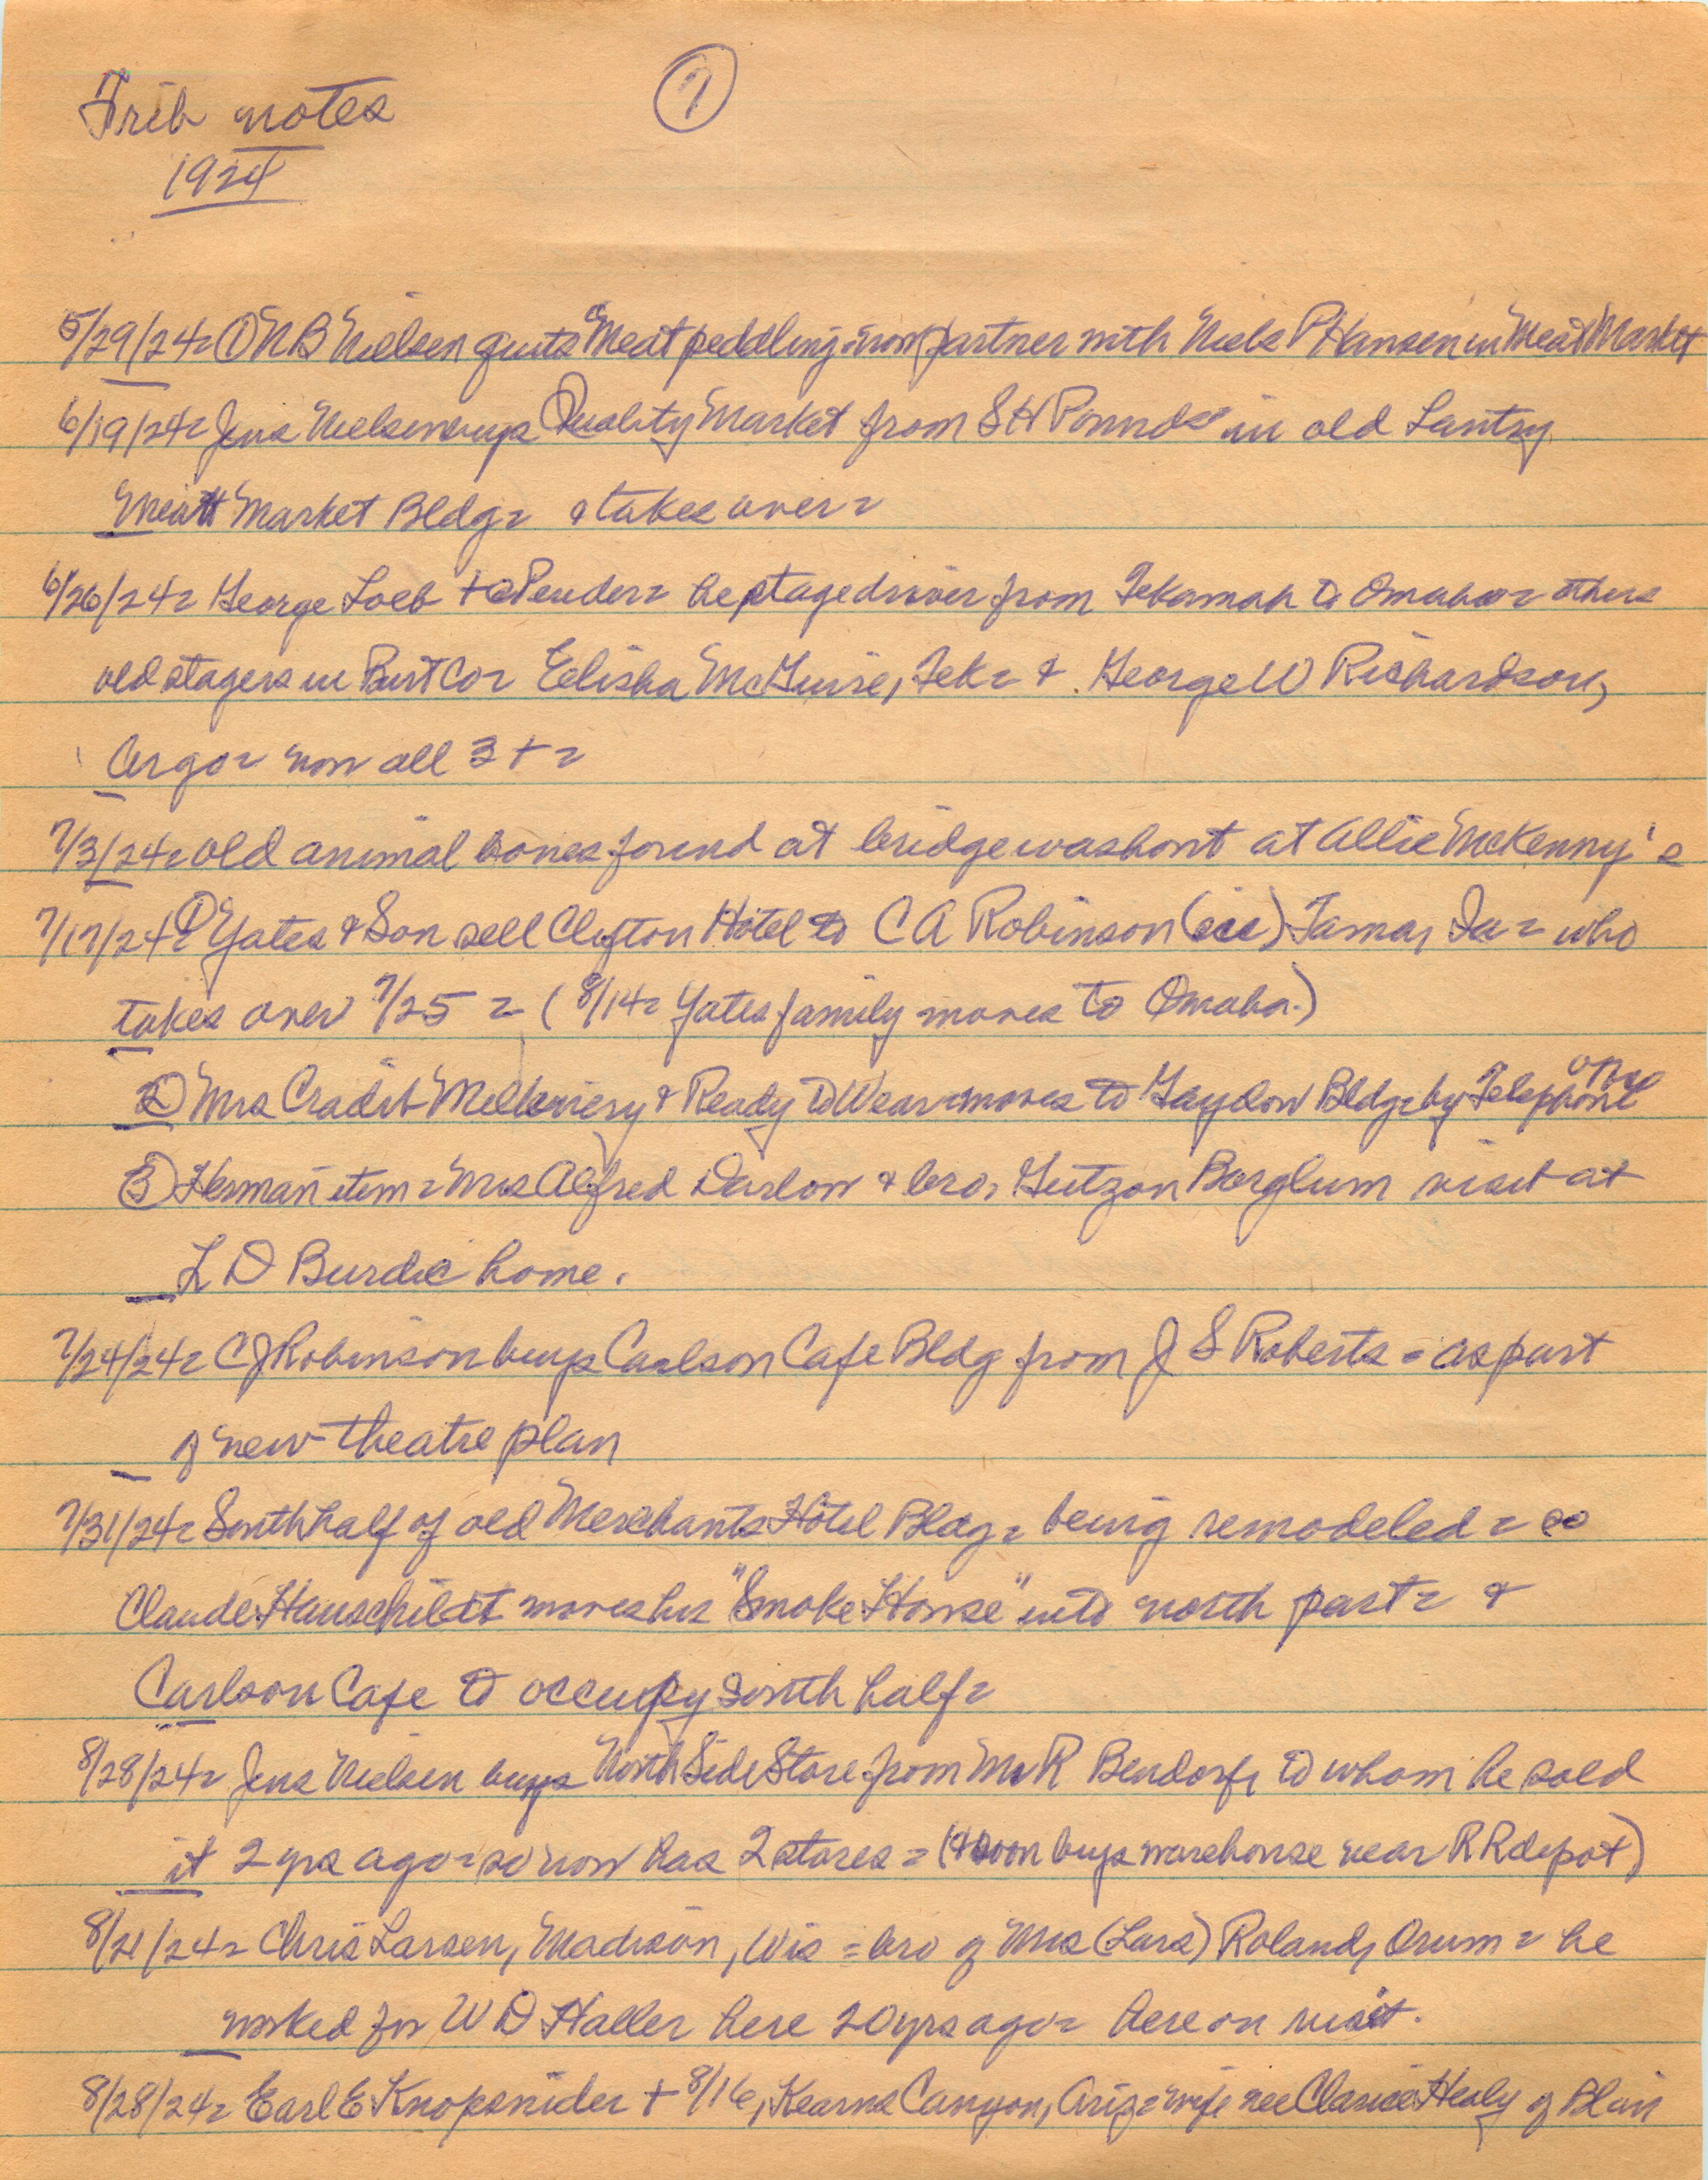 Trib notes
1924
7
5/29/24= ① N B Nielsen quits Meat peddling = now partner with Niels P Hansen in Meat Market
6/19/24= Jens Nielsen buys Quality Market from S H Pounds in old Lantry
Meat Market Bldg= & takes over=
6/26/24= George Loeb + Pender= he stage driver from Tekamah to Omaha= others
old stagers in Burt Co= Elisha McGuire, Tek= & George W Richardson,
Argo= now all 3 + =
7/3/24= old animal bones found at bridge washout at Allie McKenny's
7/17/24= ① Yates & Son sell Clifton Hotel to C A Robinson (sic) Tama, Ia= who
takes over 7/25 = (8/14= Yates family moves to Omaha.)
② Mrs Cradit Millinery & Ready to Wear moves to Gaydou Bldg= by Telephone office
③ Herman item= Mrs Alfred Darlow & bro, Gutzon Borglum visit at
L D Burdic home.
7/24/24= C J Robinson buys Carlson Cafe Bldg from J S Roberts = as part
of new theatre plan
7/31/24= South half of old Merchants Hotel Bldg= being remodeled=
Claude Hauschildt moves his "Smoke House" into north part= &
Carlson Cafe to occupy south half=
8/28/24= Jens Nielsen buys North Side Store from M R Bendorf, to whom he sold
it 2 yrs ago= so now has 2 stores= (& soon buys warehouse near R R depot)
8/21/24= Chris Larsen, Madison, Wis = bro of Mrs (Lars) Roland, Orum= he
worked for W D Haller here 20 yrs ago= here on visit.
8/28/24= Earl E Knopsnider + 8/16, Kearns Canyon, Ariz= wife nee Clarice Healy of Blair